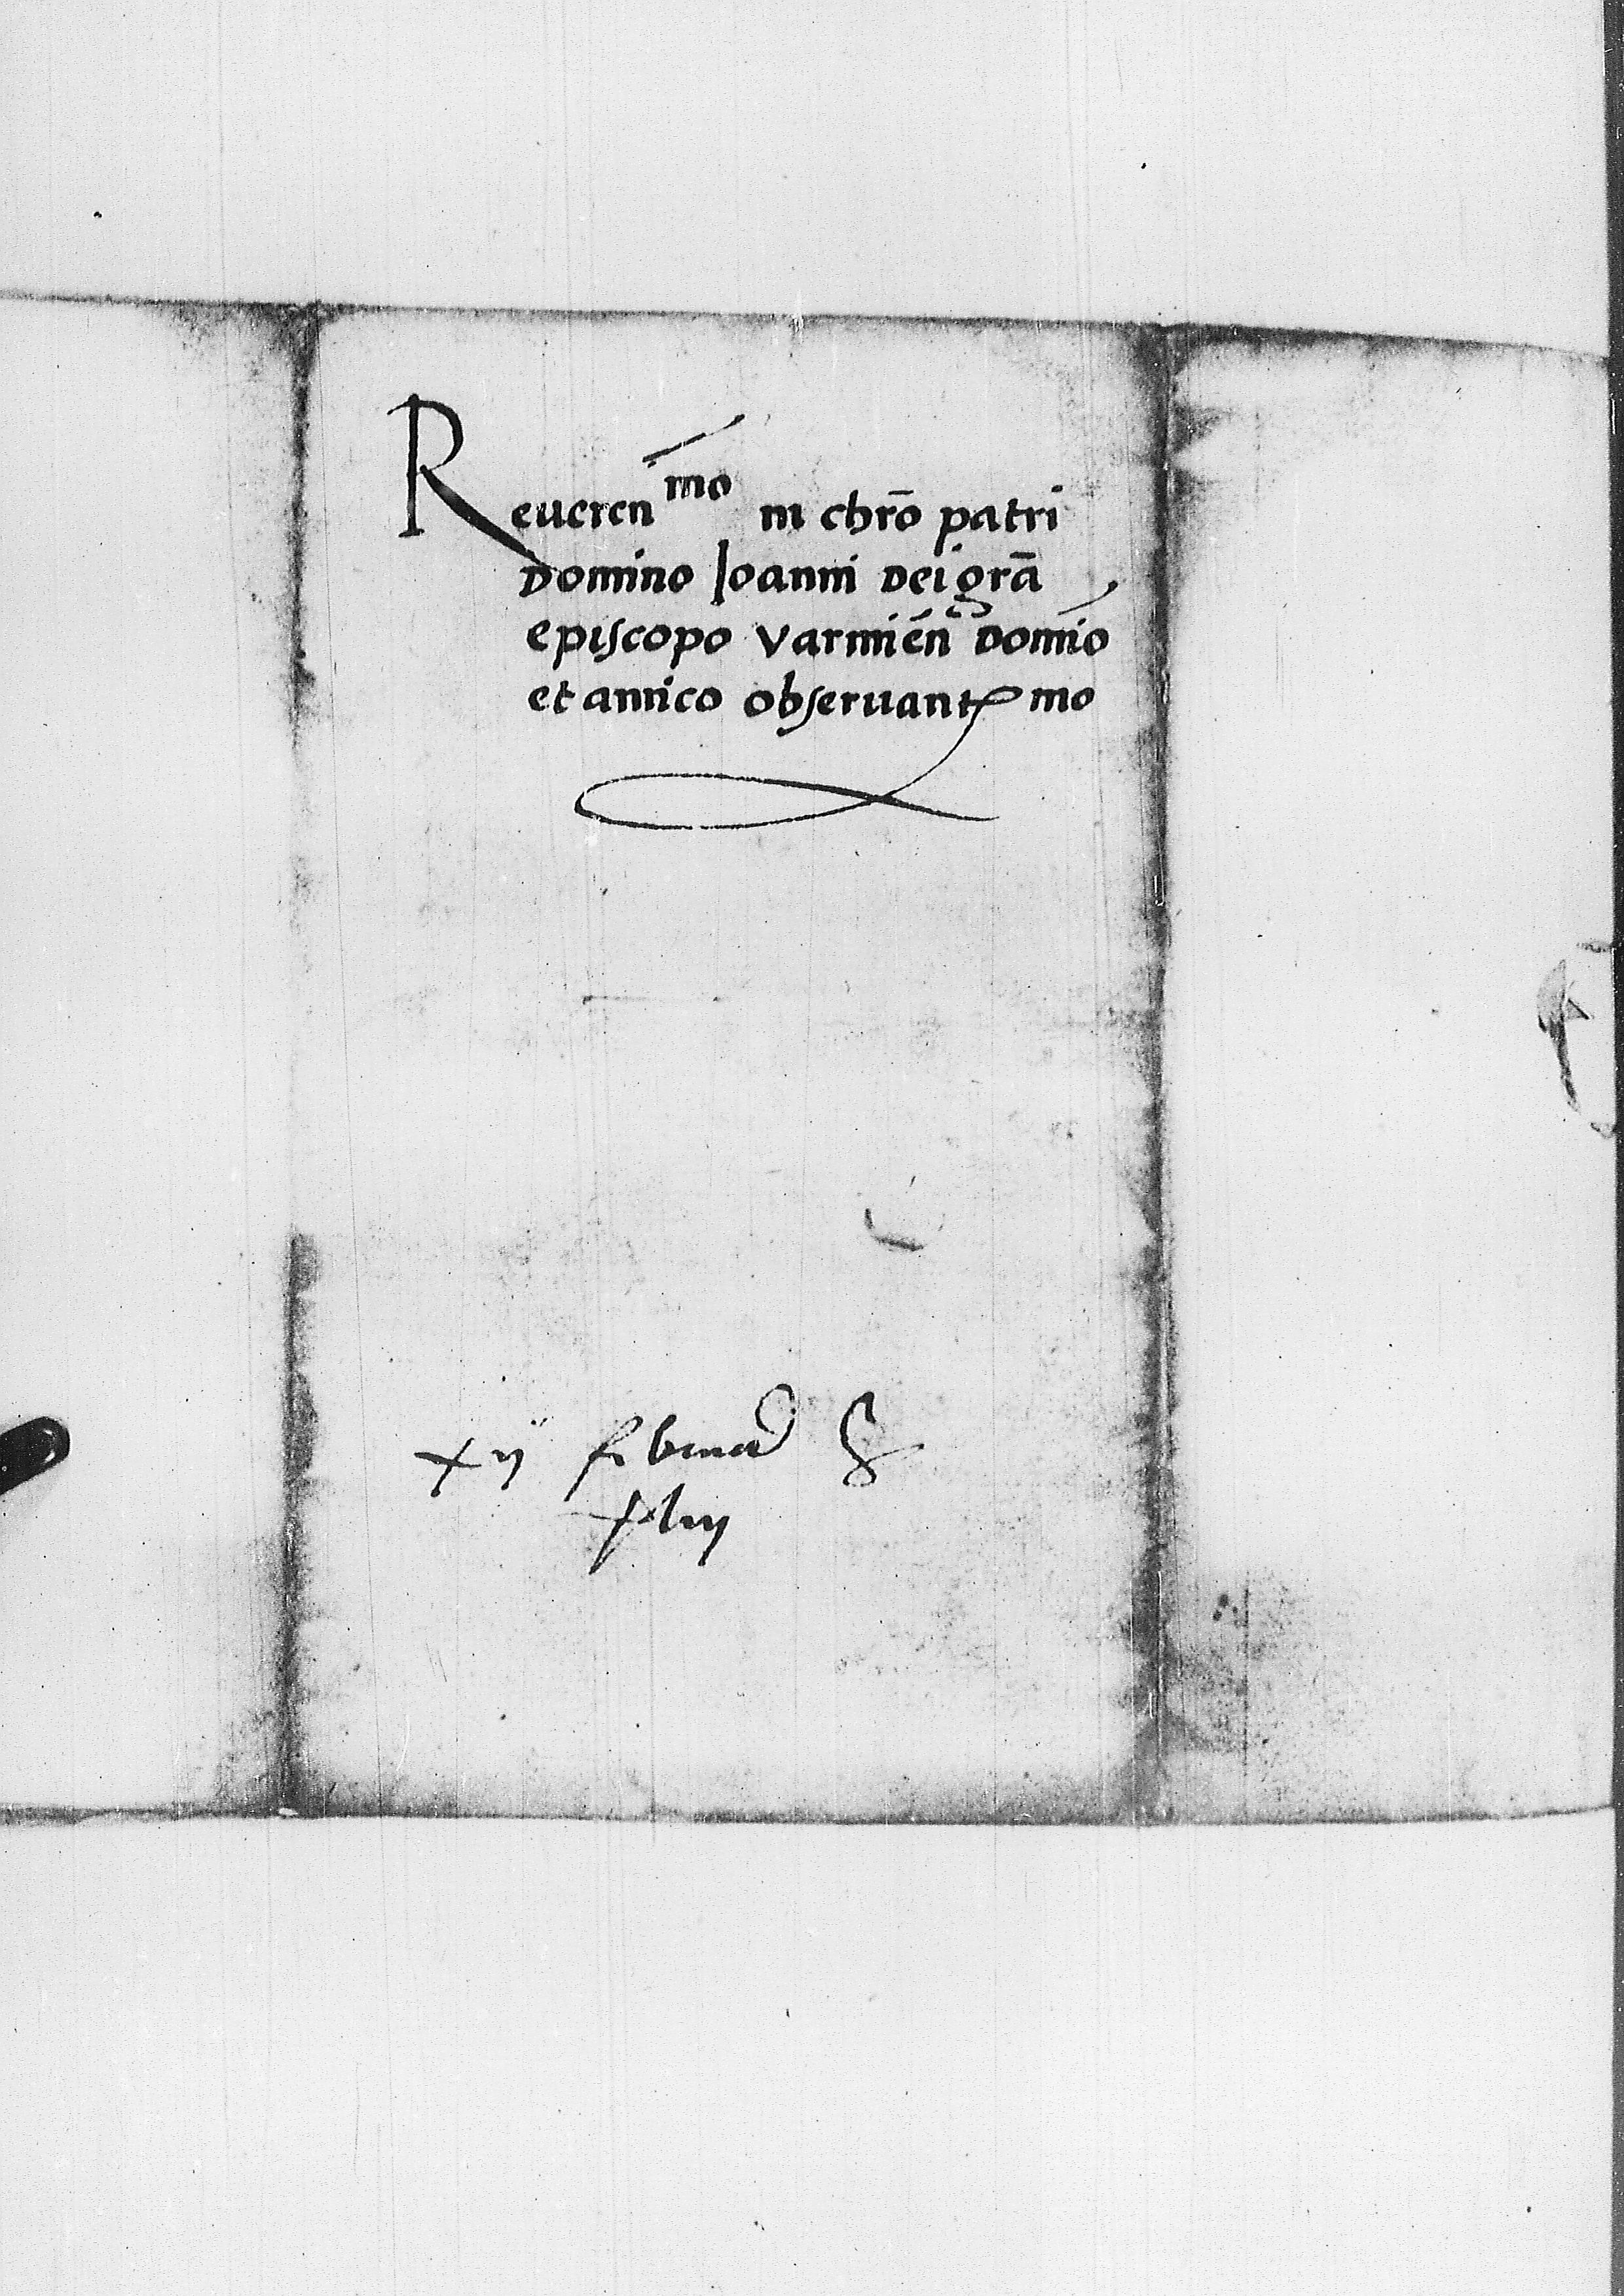 Reueren^mo in chr̄o patri
Domino Ioanni Dei gr̄a
episcopo Varmień Domīo
et amico obseruantmo
xij februarii
xliij